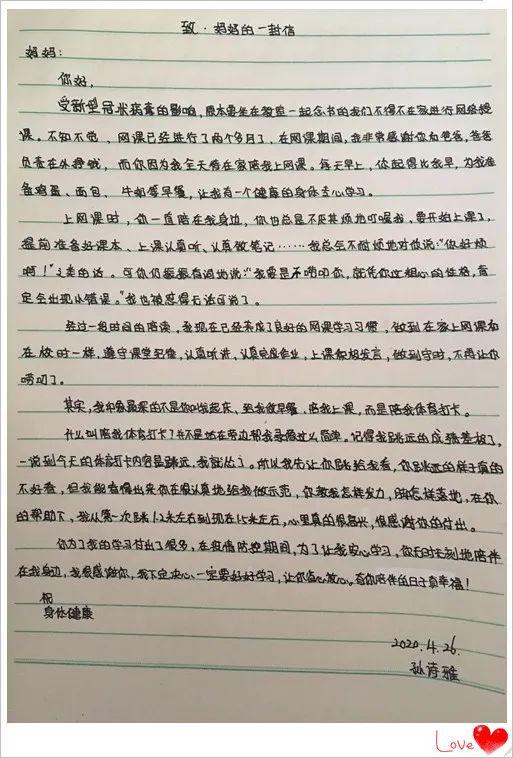 致·妈妈的一封信
妈妈：
你好，
受新型冠状病毒的影响，原本要坐在教室一起念书的我们不得不在家进行网络授
课。不知不觉，网课已经进行了两个多月了，在网课期间，我非常感谢你和爸爸，爸爸
负责在外挣钱，而你因为我全天候在家陪我上网课。每天早上，你起得比我早，为我准
备鸡蛋、面包、牛奶等早餐，让我有一个健康的身体去心学习。
上网课时，你一直陪在我身边，你也总是不厌其烦地叮嘱我，要开始上课了，
提前准备好课本、上课认真听、认真做笔记……我总会不耐烦地对你说：“你好烦
啊！”之类的话。可你仍振振有词地说：“我要是不唠叨你，就凭你这粗心的性格，肯
定会出现小错误。”我也被怼得无话可说了。
经过一段时间的陪读，我现在已经养成了良好的网课学习习惯，做到在家上网课和
在校时一样，遵守课堂纪律，认真听讲，认真完成作业，上课积极发言，做到守时，不再让你
唠叨了。
其实，我印象最深的不是你叫我起床、给我做早餐、陪我上课，而是陪我体育打卡。
什么叫陪我体育打卡？并不是站在旁边帮我录像这么简单。记得我跳远的成绩差极了，
一说到今天的体育打卡内容是跳远，我就怂了。所以我先让你跳给我看，你跳远的样子真的
不好看，但我能看得出来你在很认真地给我做示范，你教我怎样发力，脚怎样落地，在你
的帮助下，我从第一次跳1.2米左右到现在1.5米左右，心里真的很高兴，很感谢你的付出。
你为了我的学习付出了很多，在疫情防控期间，为了让我安心学习，你无时无刻地陪伴
在我身边，我很感谢你，我下定决心，一定要好好学习，让你省心放心。有你陪伴的日子真幸福！
祝
身体健康
2020.4.26.
孙诗雅
Love